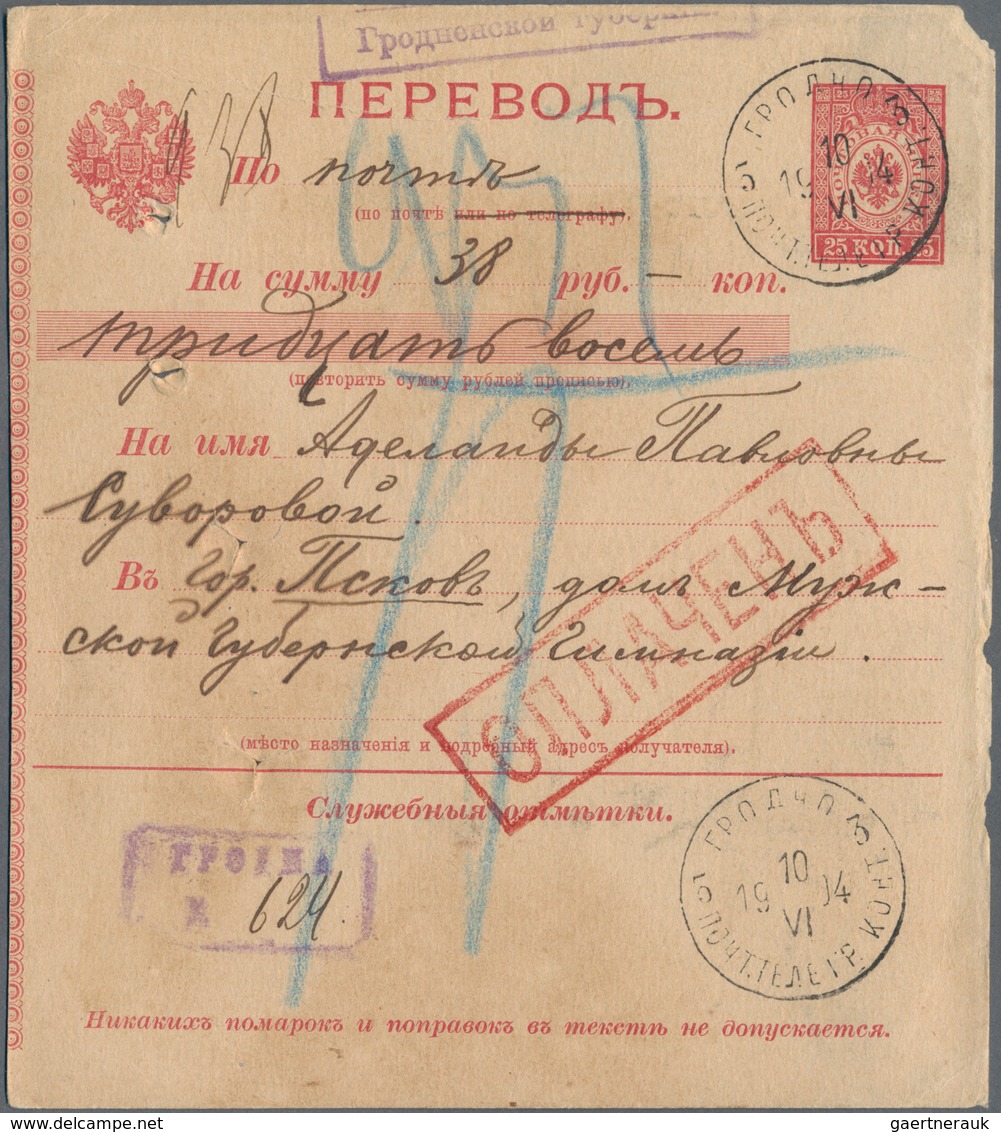 Гродненской губерніи
ПЕРЕВОДЪ.
По почтѣ
(по почтѣ или по телеграфу).
На сумму 38 руб. — коп.
тридцать восемь
(повторить сумму рублей прописью).
На имя Аделаиды Павловны
Суворовой.
Въ гор. Псковъ, домъ Муж-
ской Губернской Гимназіи.
(мѣсто назначенія и подробный адресъ получателя).
ОПЛАЧЕНЪ
Служебныя отмѣтки.
624.
ГРОДНО
10
19 04
VI
ПОЧТ.ТЕЛЕГР. КОНТ.
Никакихъ помарокъ и поправокъ въ текстѣ не допускается.
ГРОДНО
10
19 04
VI
ПОЧТ.ТЕЛЕГР. КОНТ.
25 КОП. 25
gaertnerauk